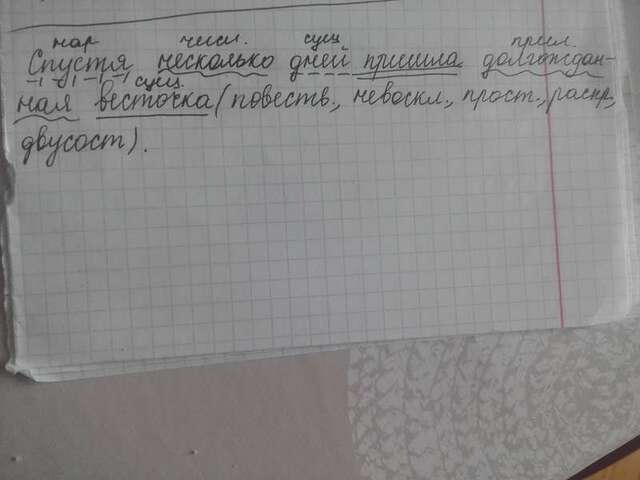 нар числ. сущ прил.
Спустя несколько дней пришла долгождан-
сущ.
ная весточка (повеств, невоскл, прост, распр,
двусост).